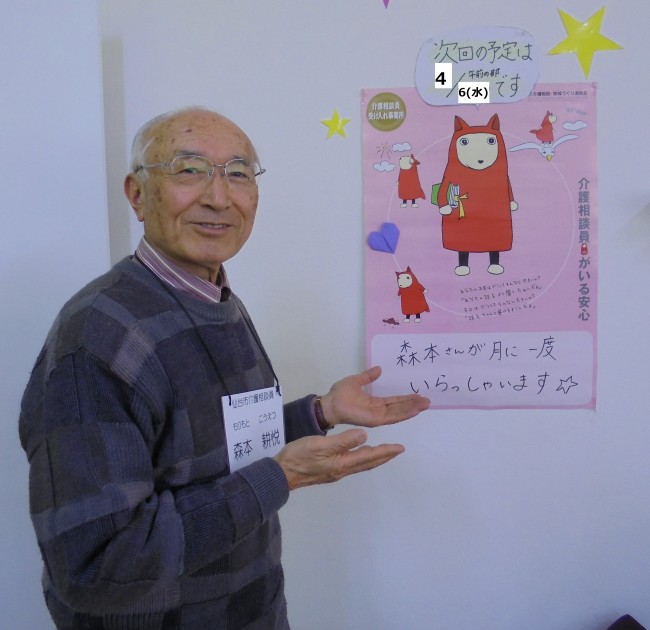 次回の予定は
4/
午前の部
6(水)
です
介護相談員
受け入れ事業所
介護相談員がいる安心
森本さんが月に一度
いらっしゃいます☆
仙台市介護相談員
もりもと こうえつ
森本 耕悦